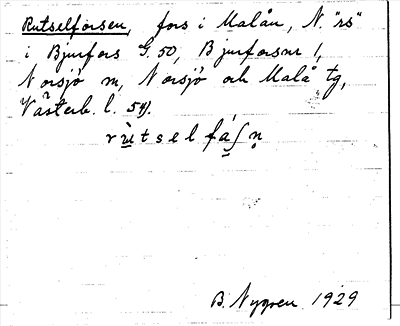 Rutselforsen, fors i Malån, N. "rs"
i Bjurfors G. 50, Bjurforsnr 1,
Norsjö sn, Norsjö och Malå tg,
Västerb. l.
rùtselfáʃn̥
B. Nygren 1929